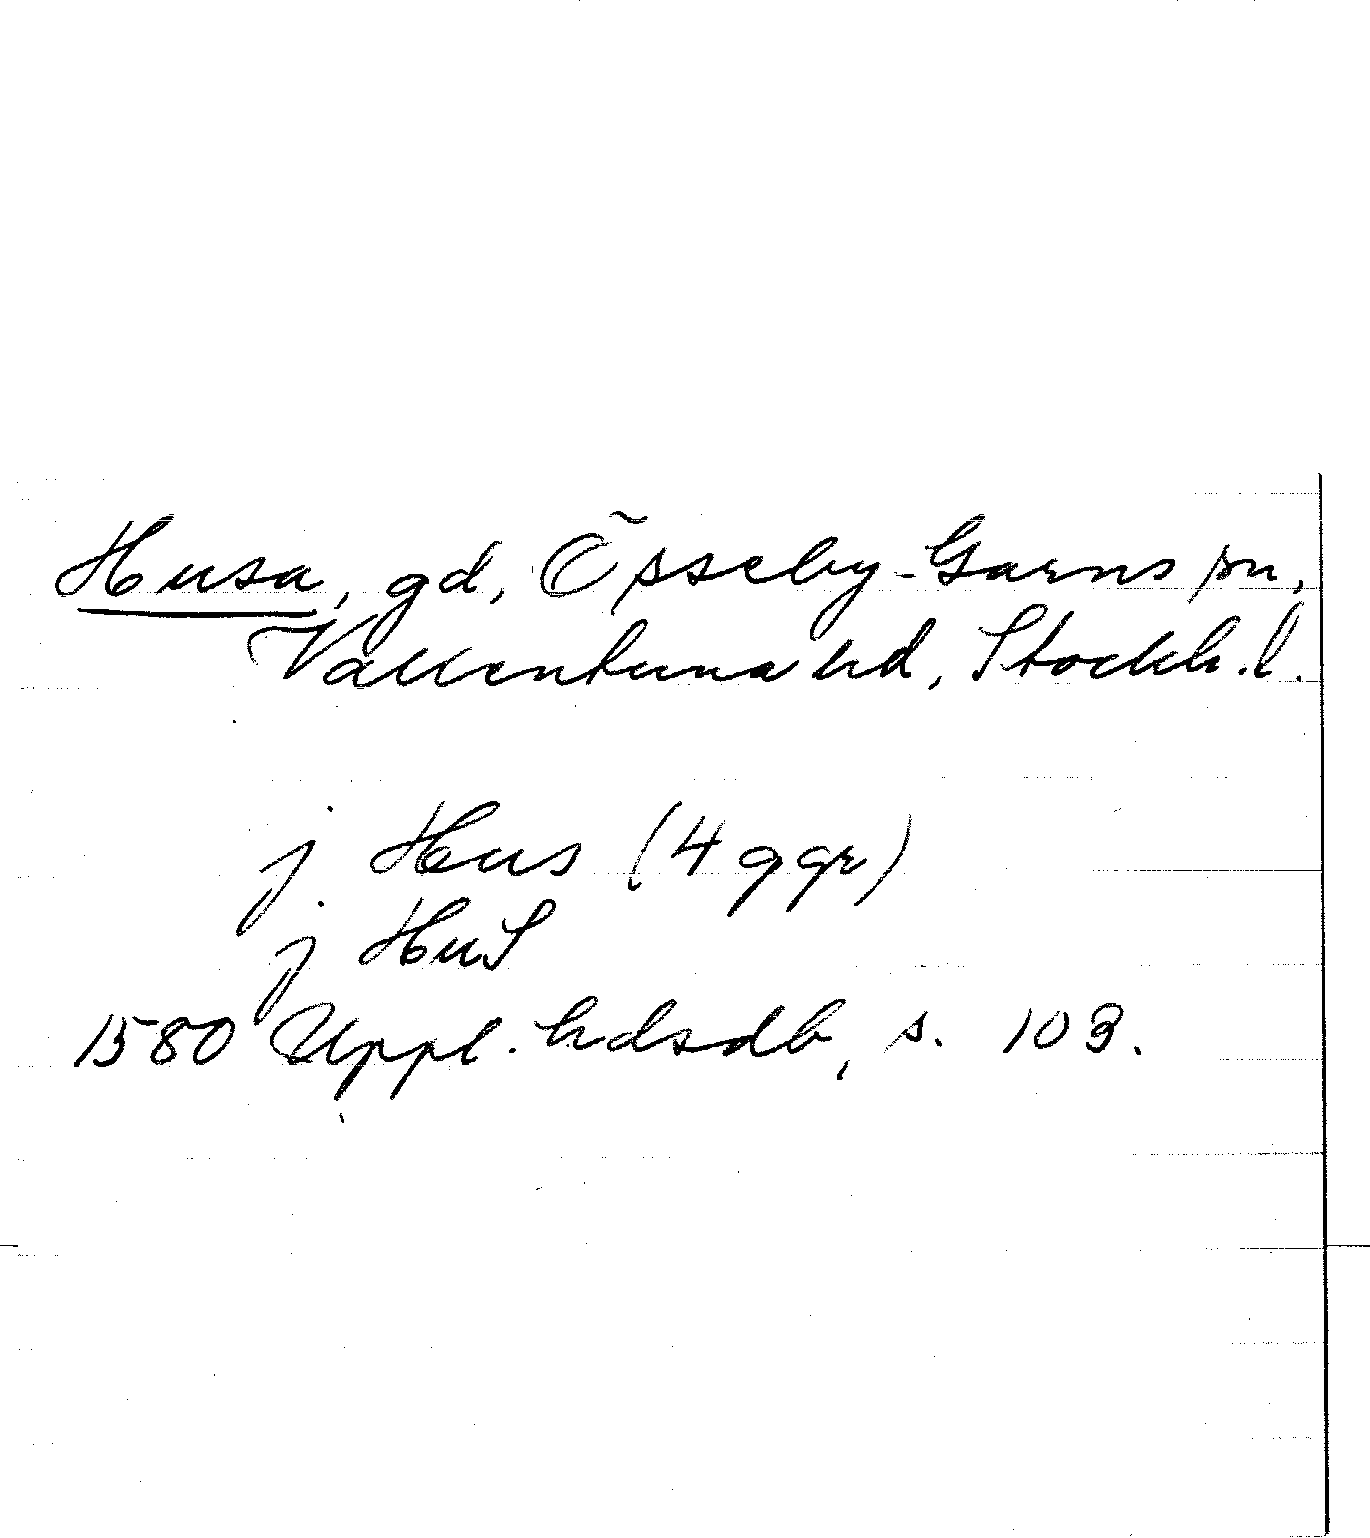 Husa, gd, Össeby-Garns sn,
Vallentuna hd, Stockh.l.
j Hus (4 ggr)
j HuS
1580 Uppl. hdsdb, s. 103.